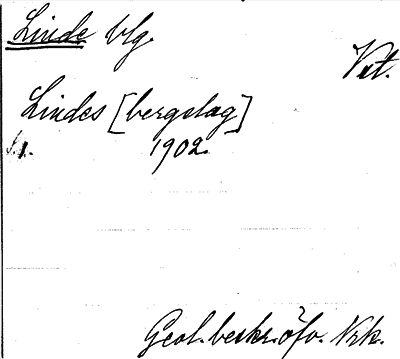 Linde blg.
Vstm.
Lindes [bergslag]
s. 1. 1902.
Geol. beskr. öfv. Nrk.